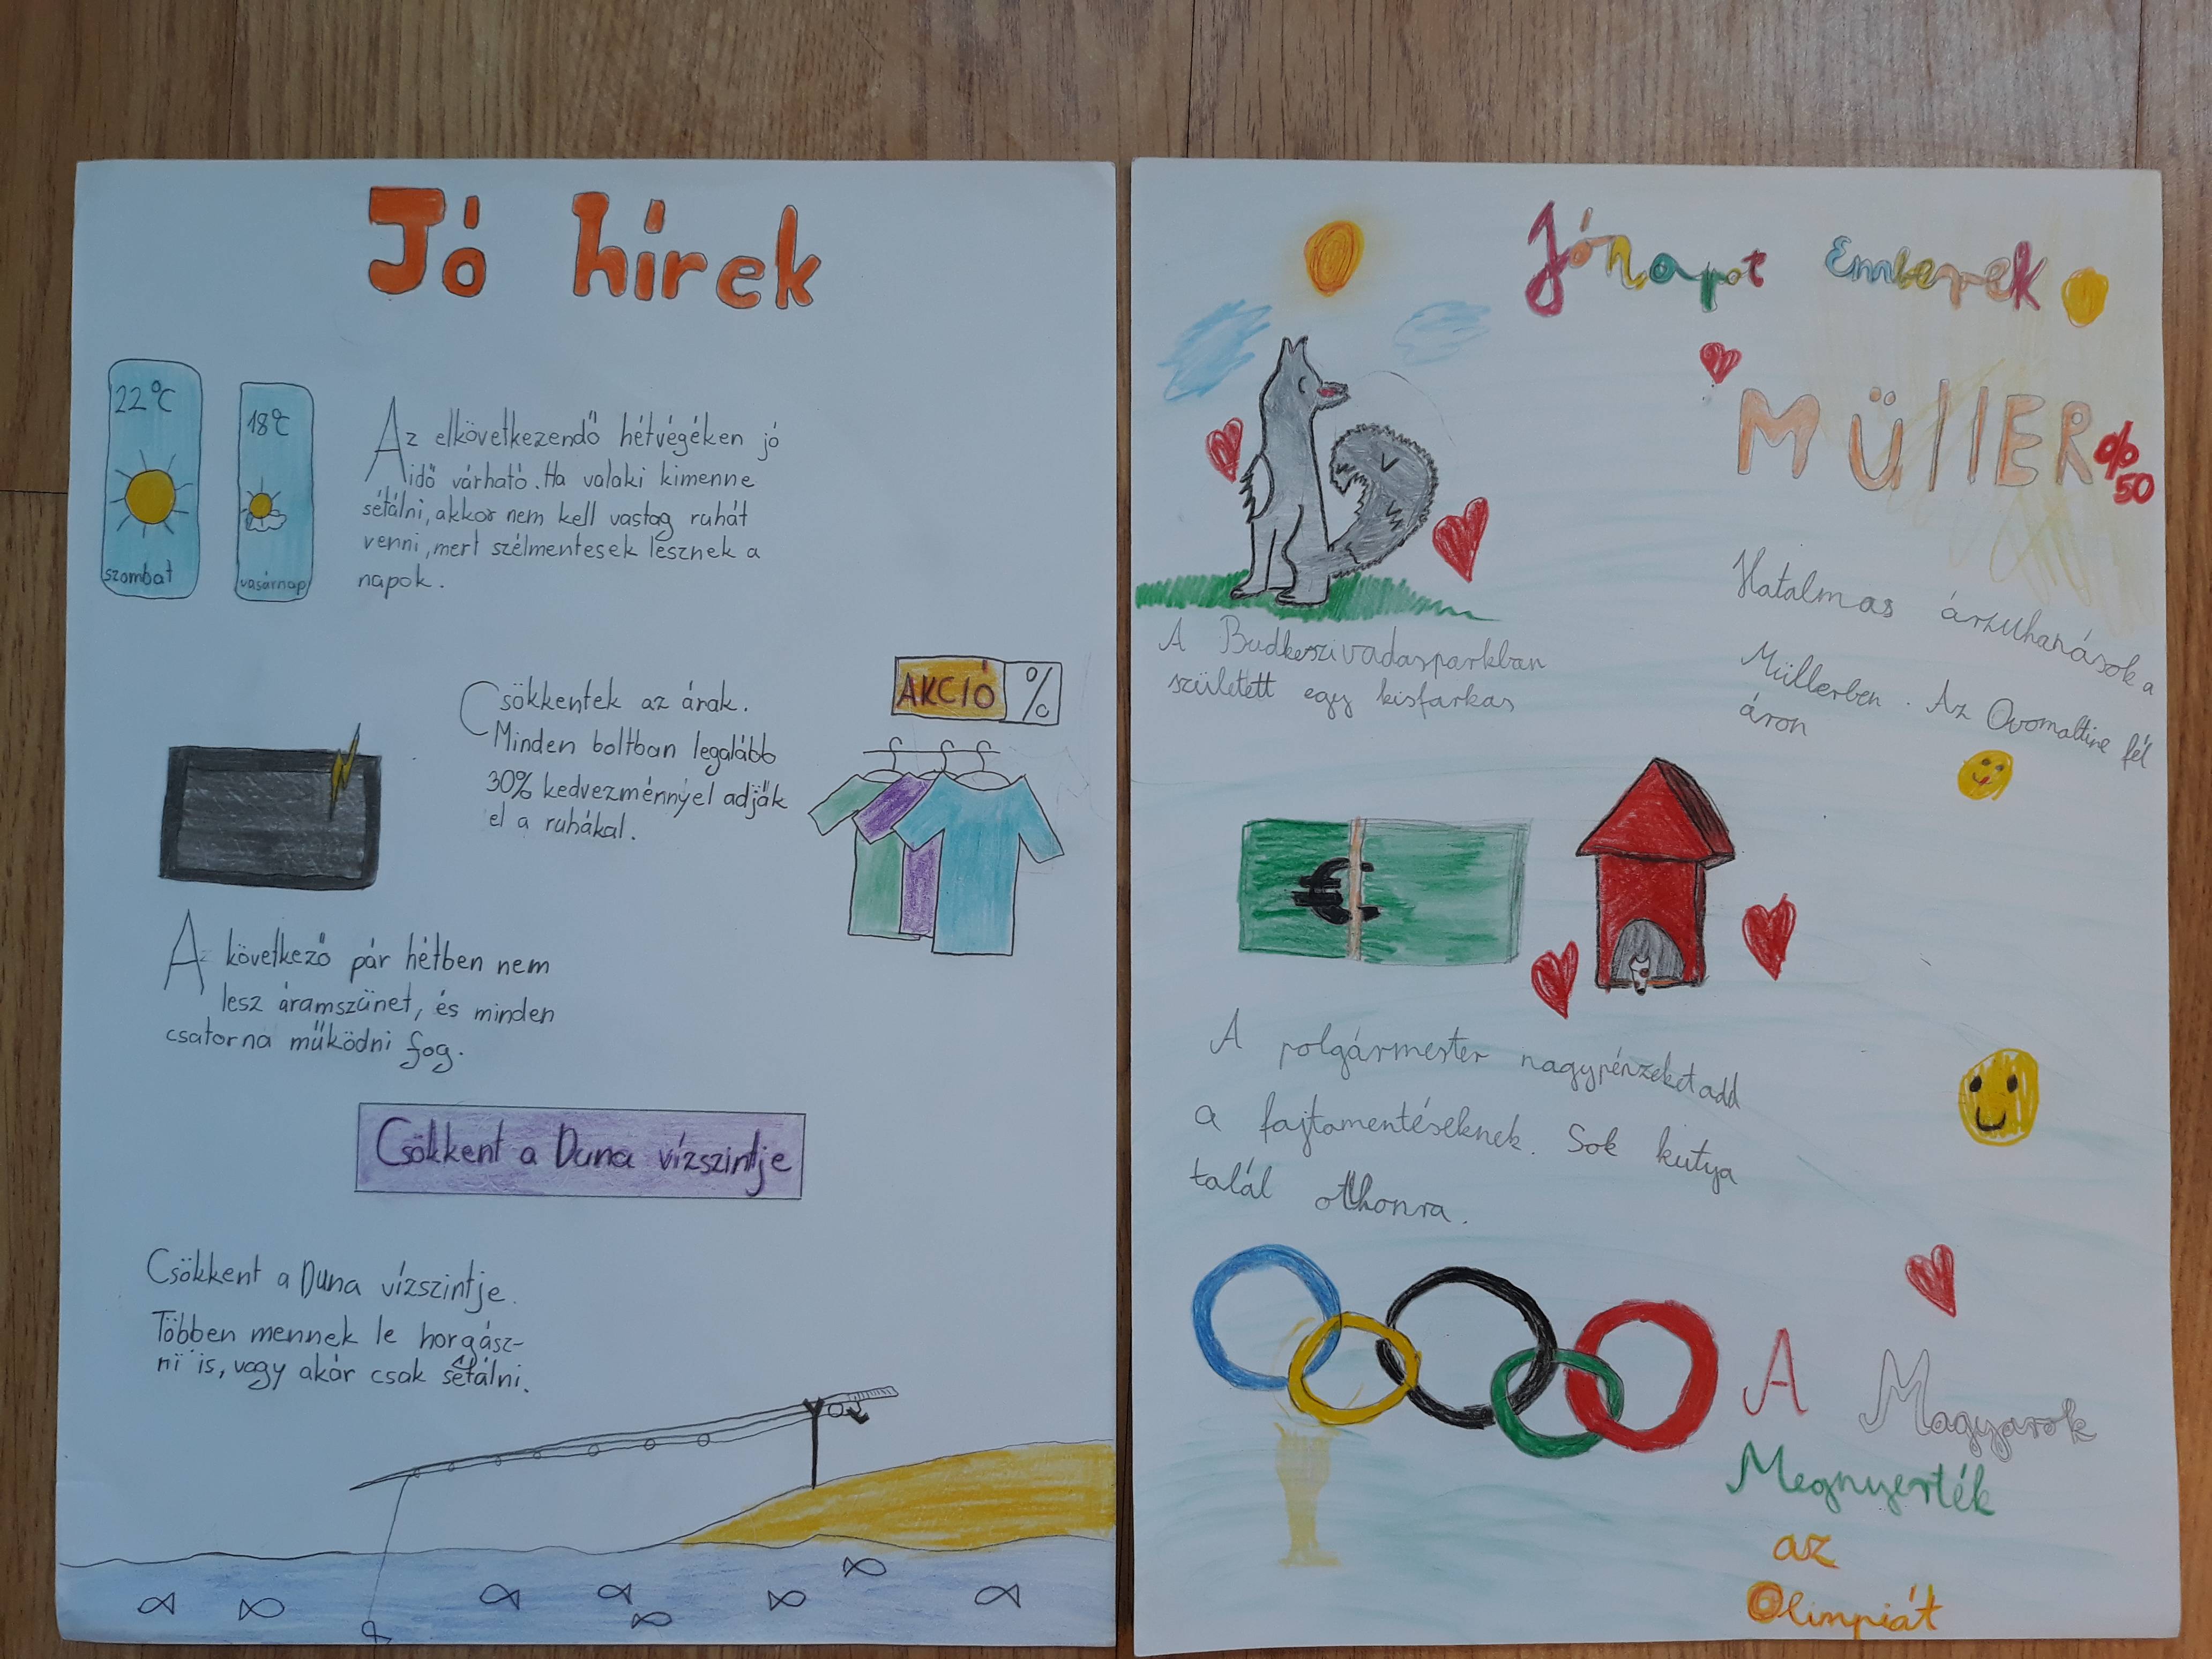 Jó hírek
22°C
szombat
18°C
vasárnap
Az elkövetkezendő hétvégéken jó
idő várható. Ha valaki kimenne
sétálni, akkor nem kell vastag ruhát
venni, mert szélmentesek lesznek a
napok.
Csökkentek az árak.
Minden boltban legalább
30% kedvezménnyel adják
el a ruhákal.
AKCIÓ %
A következő pár hétben nem
lesz áramszünet, és minden
csatorna működni fog.
Csökkent a Duna vízszintje
Csökkent a Duna vízszintje.
Többen mennek le horgász-
ni is, vagy akár csak sétálni.
Jó Napot Emberek
MüllER %
50
A Budkeszivadasparkban
született egy kisfarkas
Hatalmas árzuhanások a
Müllerben. Az Ovomaltine fél
áron
€
A polgármester nagypénzeket add
a fajtamentéseknek. Sok kutya
talál otthonra.
A Magyarok
Megnyerték
az
Olimpiát